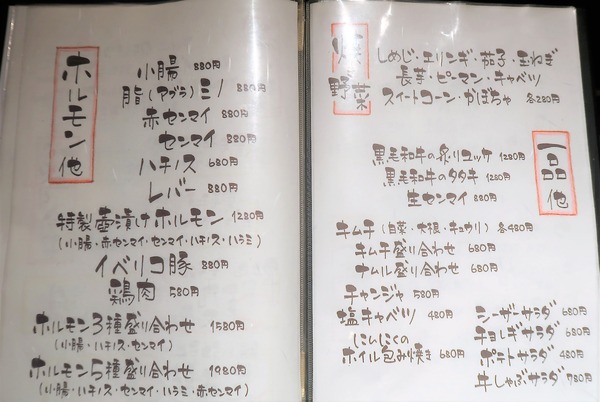 ホルモン他
小腸 880円
脂(アブラ)ミノ 880円
赤センマイ 880円
センマイ 880円
ハチノス 680円
レバー 880円
特製壺漬けホルモン 1280円
(小腸・赤センマイ・センマイ・ハチノス・ハラミ)
イベリコ豚 880円
鶏肉 580円
ホルモン3種盛り合わせ 1580円
(小腸・ハチノス・センマイ)
ホルモン5種盛り合わせ 1980円
(小腸・ハチノス・センマイ・ハラミ・赤センマイ)
焼野菜
しめじ・エリンギ・茄子・玉ねぎ
長芋・ピーマン・キャベツ
スイートコーン・かぼちゃ 各280円
一品他
黒毛和牛の炙りユッケ 1280円
黒毛和牛のタタキ 1280円
生センマイ 880円
キムチ(白菜・大根・キュウリ) 各480円
キムチ盛り合わせ 680円
ナムル盛り合わせ 680円
チャンジャ 580円
塩キャベツ 480円
にんにくの
ホイル包み焼き 680円
シーザーサラダ 680円
チョレギサラダ 680円
ポテトサラダ 480円
牛しゃぶサラダ 780円